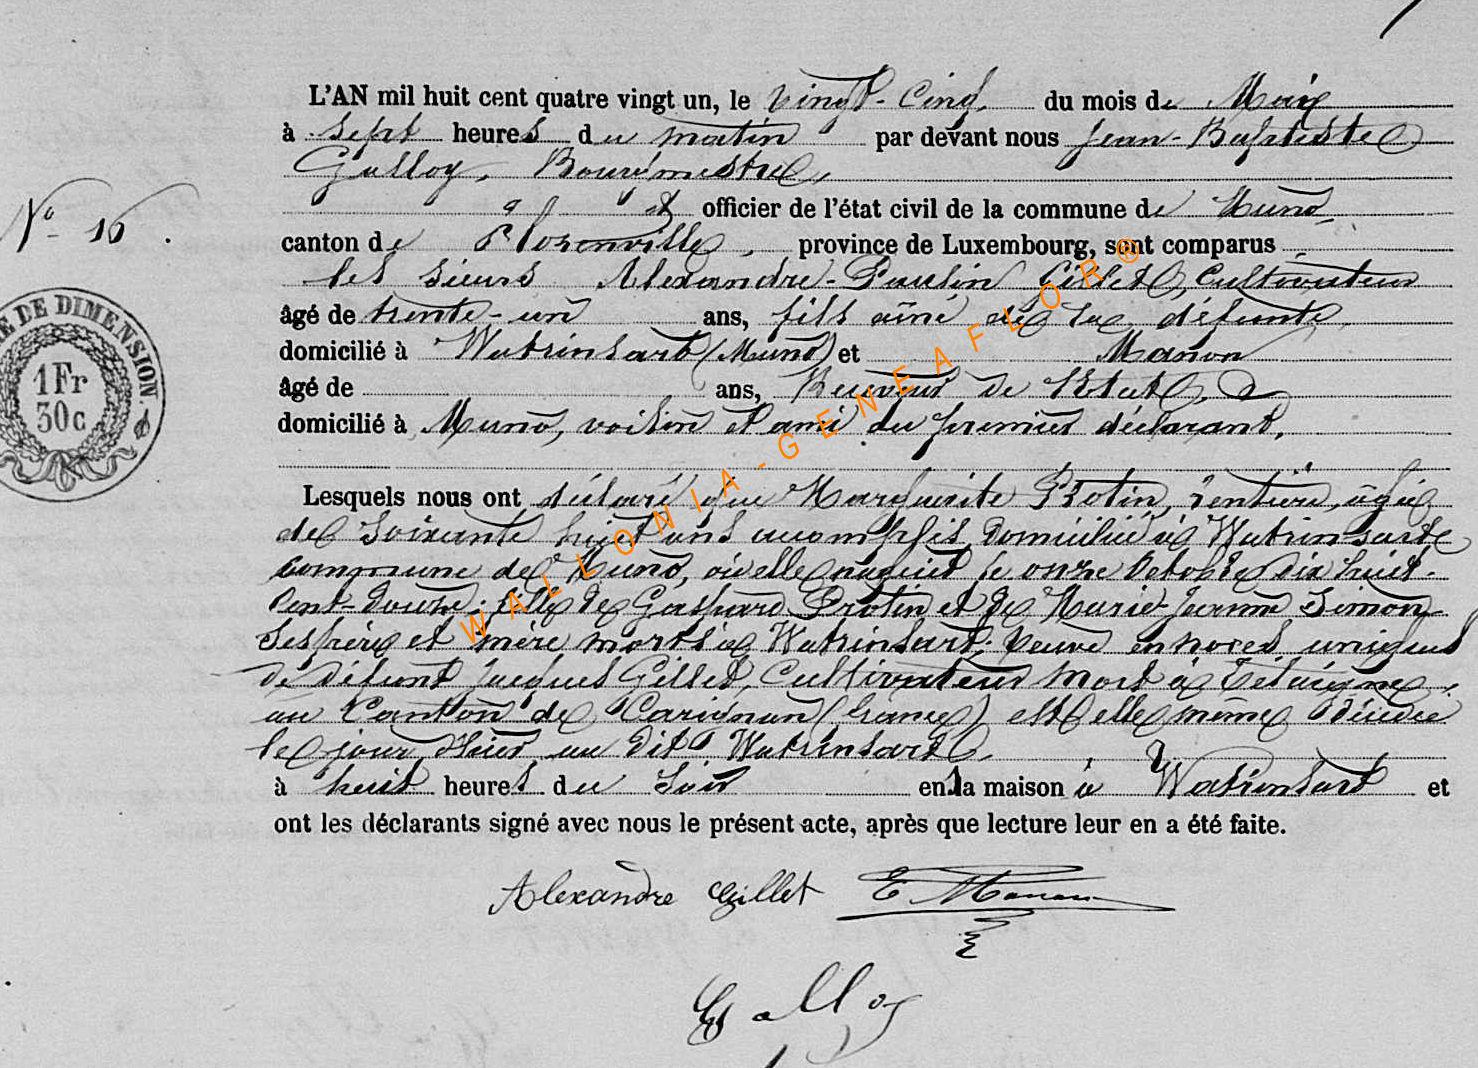 L'AN mil huit cent quatre vingt un, le vingt-cinq, du mois de Mai
à sept heures du matin par devant nous Jean-Baptiste
Galloy, Bourgmestre,
officier de l'état civil de la commune de Muno,
N° 16.
canton de Florenville, province de Luxembourg, sont comparus
les sieurs Alexandre-Paulin Gillet, cultivateur
âgé de trente-un ans, fils aîné de la défunte,
domicilié à Watrinsart (Muno) et Manon
âgé de ans, Receveur de l'Etat,
domicilié à Muno, voisin et ami du premier déclarant.
Lesquels nous ont déclaré que Marguerite Protin, rentière, âgée
de soixante huit ans accomplis, domiciliée à Watrinsart
commune de Muno, où elle naquit le onze Octobre dix huit-
Cent-Douze; fille de Gaspard Protin et de Marie-Jeanne Simon
ses père et mère morts à Watrinsart; Veuve en noces uniques
de défunt Jacques Gillet, Cultivateur mort à Tétaigne,
au Canton de Carignan (France), est elle même décédée
le jour d'hier au dit Watrinsart,
à huit heures du soir en la maison à Watrinsart et
ont les déclarants signé avec nous le présent acte, après que lecture leur en a été faite.
Alexandre Gillet E Manon
Galloy
DE DIMENSION.
1 Fr
30c
WALLONIA-GENEAFLOR®